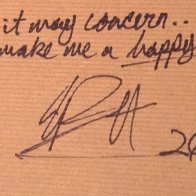 it may concern..
make me a happy